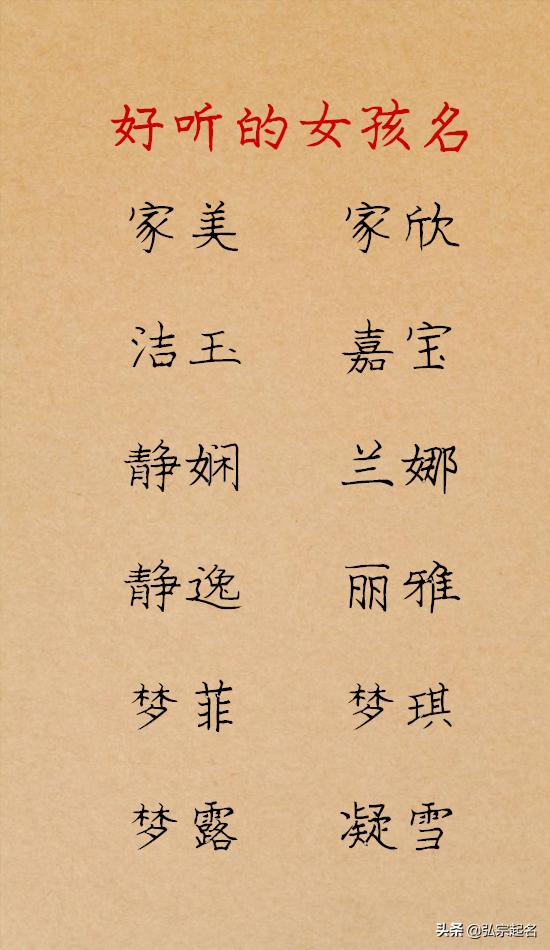 好听的女孩名
家美 家欣
洁玉 嘉宝
静娴 兰娜
静逸 丽雅
梦菲 梦琪
梦露 凝雪
头条 @弘宗起名